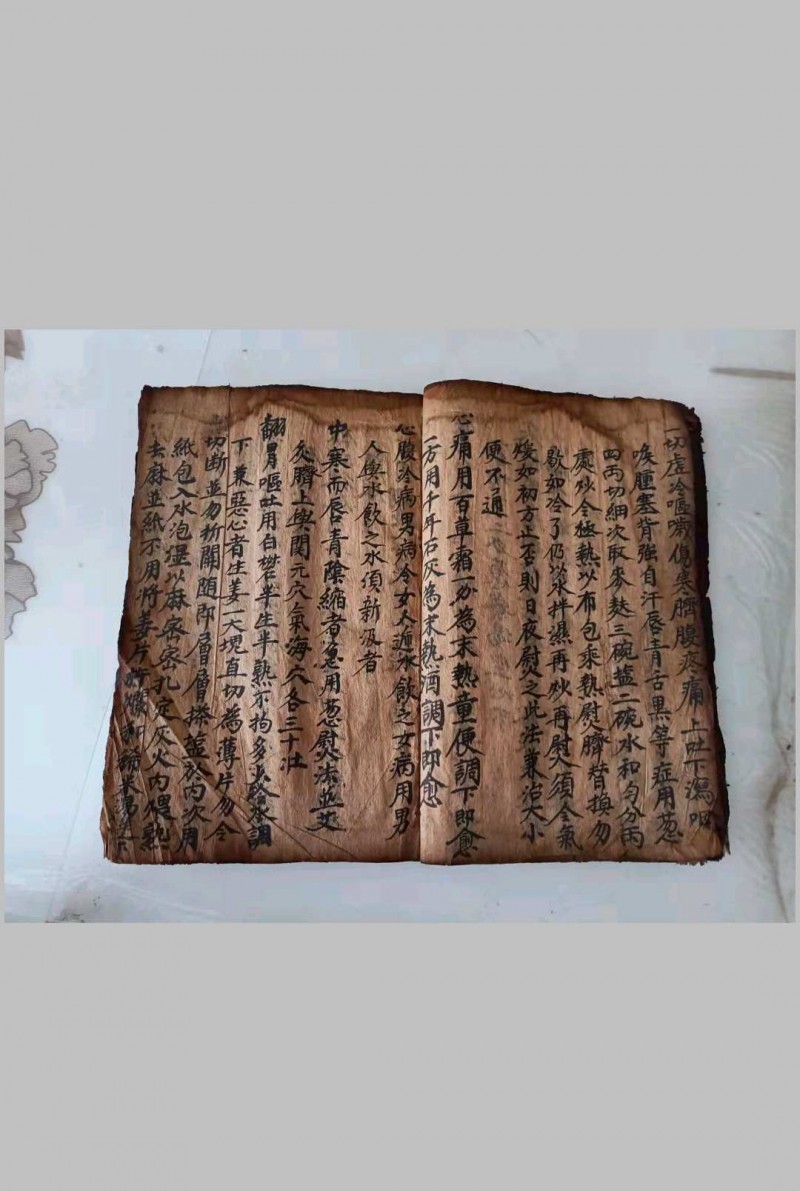 一切虛冷嘔喘傷寒臍腹疼痛上吐下瀉
喉腫塞背強自汗唇青舌黑等症用葱
四两切細次取麥麩三碗塩二碗水和勻分两
處炒令極熱以布包乘熱熨臍替換勿
歇如冷了仍以水拌濕再炒再熨須令氣
煖如初方止否則日夜熨之此法兼治大小
便不通
心痛用百草霜一分為末熱童便調下即愈
一方用千年石灰為末熱酒調下即愈
心腹冷病男病冷女人逓水飲之女病用男
人與水飲之水須新汲者
中寒而唇青陰縮者急用葱熨法並艾
灸臍上與関元穴氣海穴各三十壮
翻胃嘔吐用白礬半生半熟不拘多少冷水調
下兼惡心者生姜一大塊直切為薄片勿令
切断並勿折開随即層層搽塩於内次用
紙包入水泡湿以麻密密扎定灰火内煨熟
去麻並紙不用將姜片